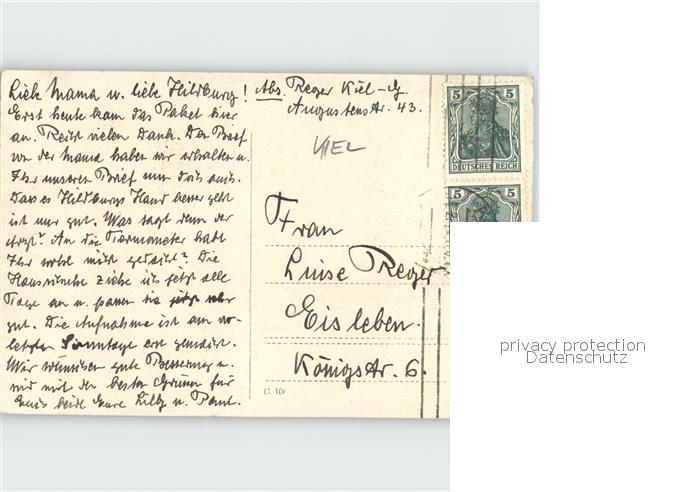 Liebe Mama u. liebe Hildburg!
Erst heute kam das Paket hier
an. Recht vielen Dank. Den Brief
von der Mama haben wir erhalten u.
Ihr unseren Brief nun doch auch.
Dass es Hildburgs Hand besser geht
ist nur gut. Was sagt denn der
Arzt? An die Termometer habt
Ihr wohl nicht gedacht? Die
Hausschuhe ziehe ich jetzt alle
Tage an u. passen sie jetzt sehr
gut. Die Aufnahme ist am vor-
letzten Sonntage erst gemacht.
Wir wünschen gute Besserung u.
sind mit den besten Grüssen für
Euch beide Eure Lilly u. Paul.
Abs. Reger Kiel-G.
Augustenstr. 43.
KIEL
Frau
Luise Reger
Eisleben.
Königstr. 6.
C 10
5 5
DEUTSCHES REICH
5 5
privacy protection
Datenschutz